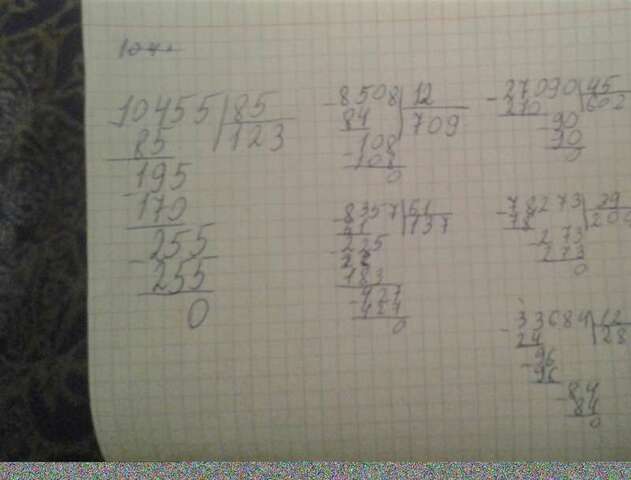 10455 | 85
85 | 123
195
170
255
255
0
- 8508 | 12
84 | 709
- 108
108
0
- 27090 | 45
270 | 602
- 90
90
0
- 8357 | 61
61 | 137
- 225
183
- 427
427
0
- 78273 | 39
78
- 273
273
0
- 33684 | 12
24 | 28
- 96
96
- 84
84
0